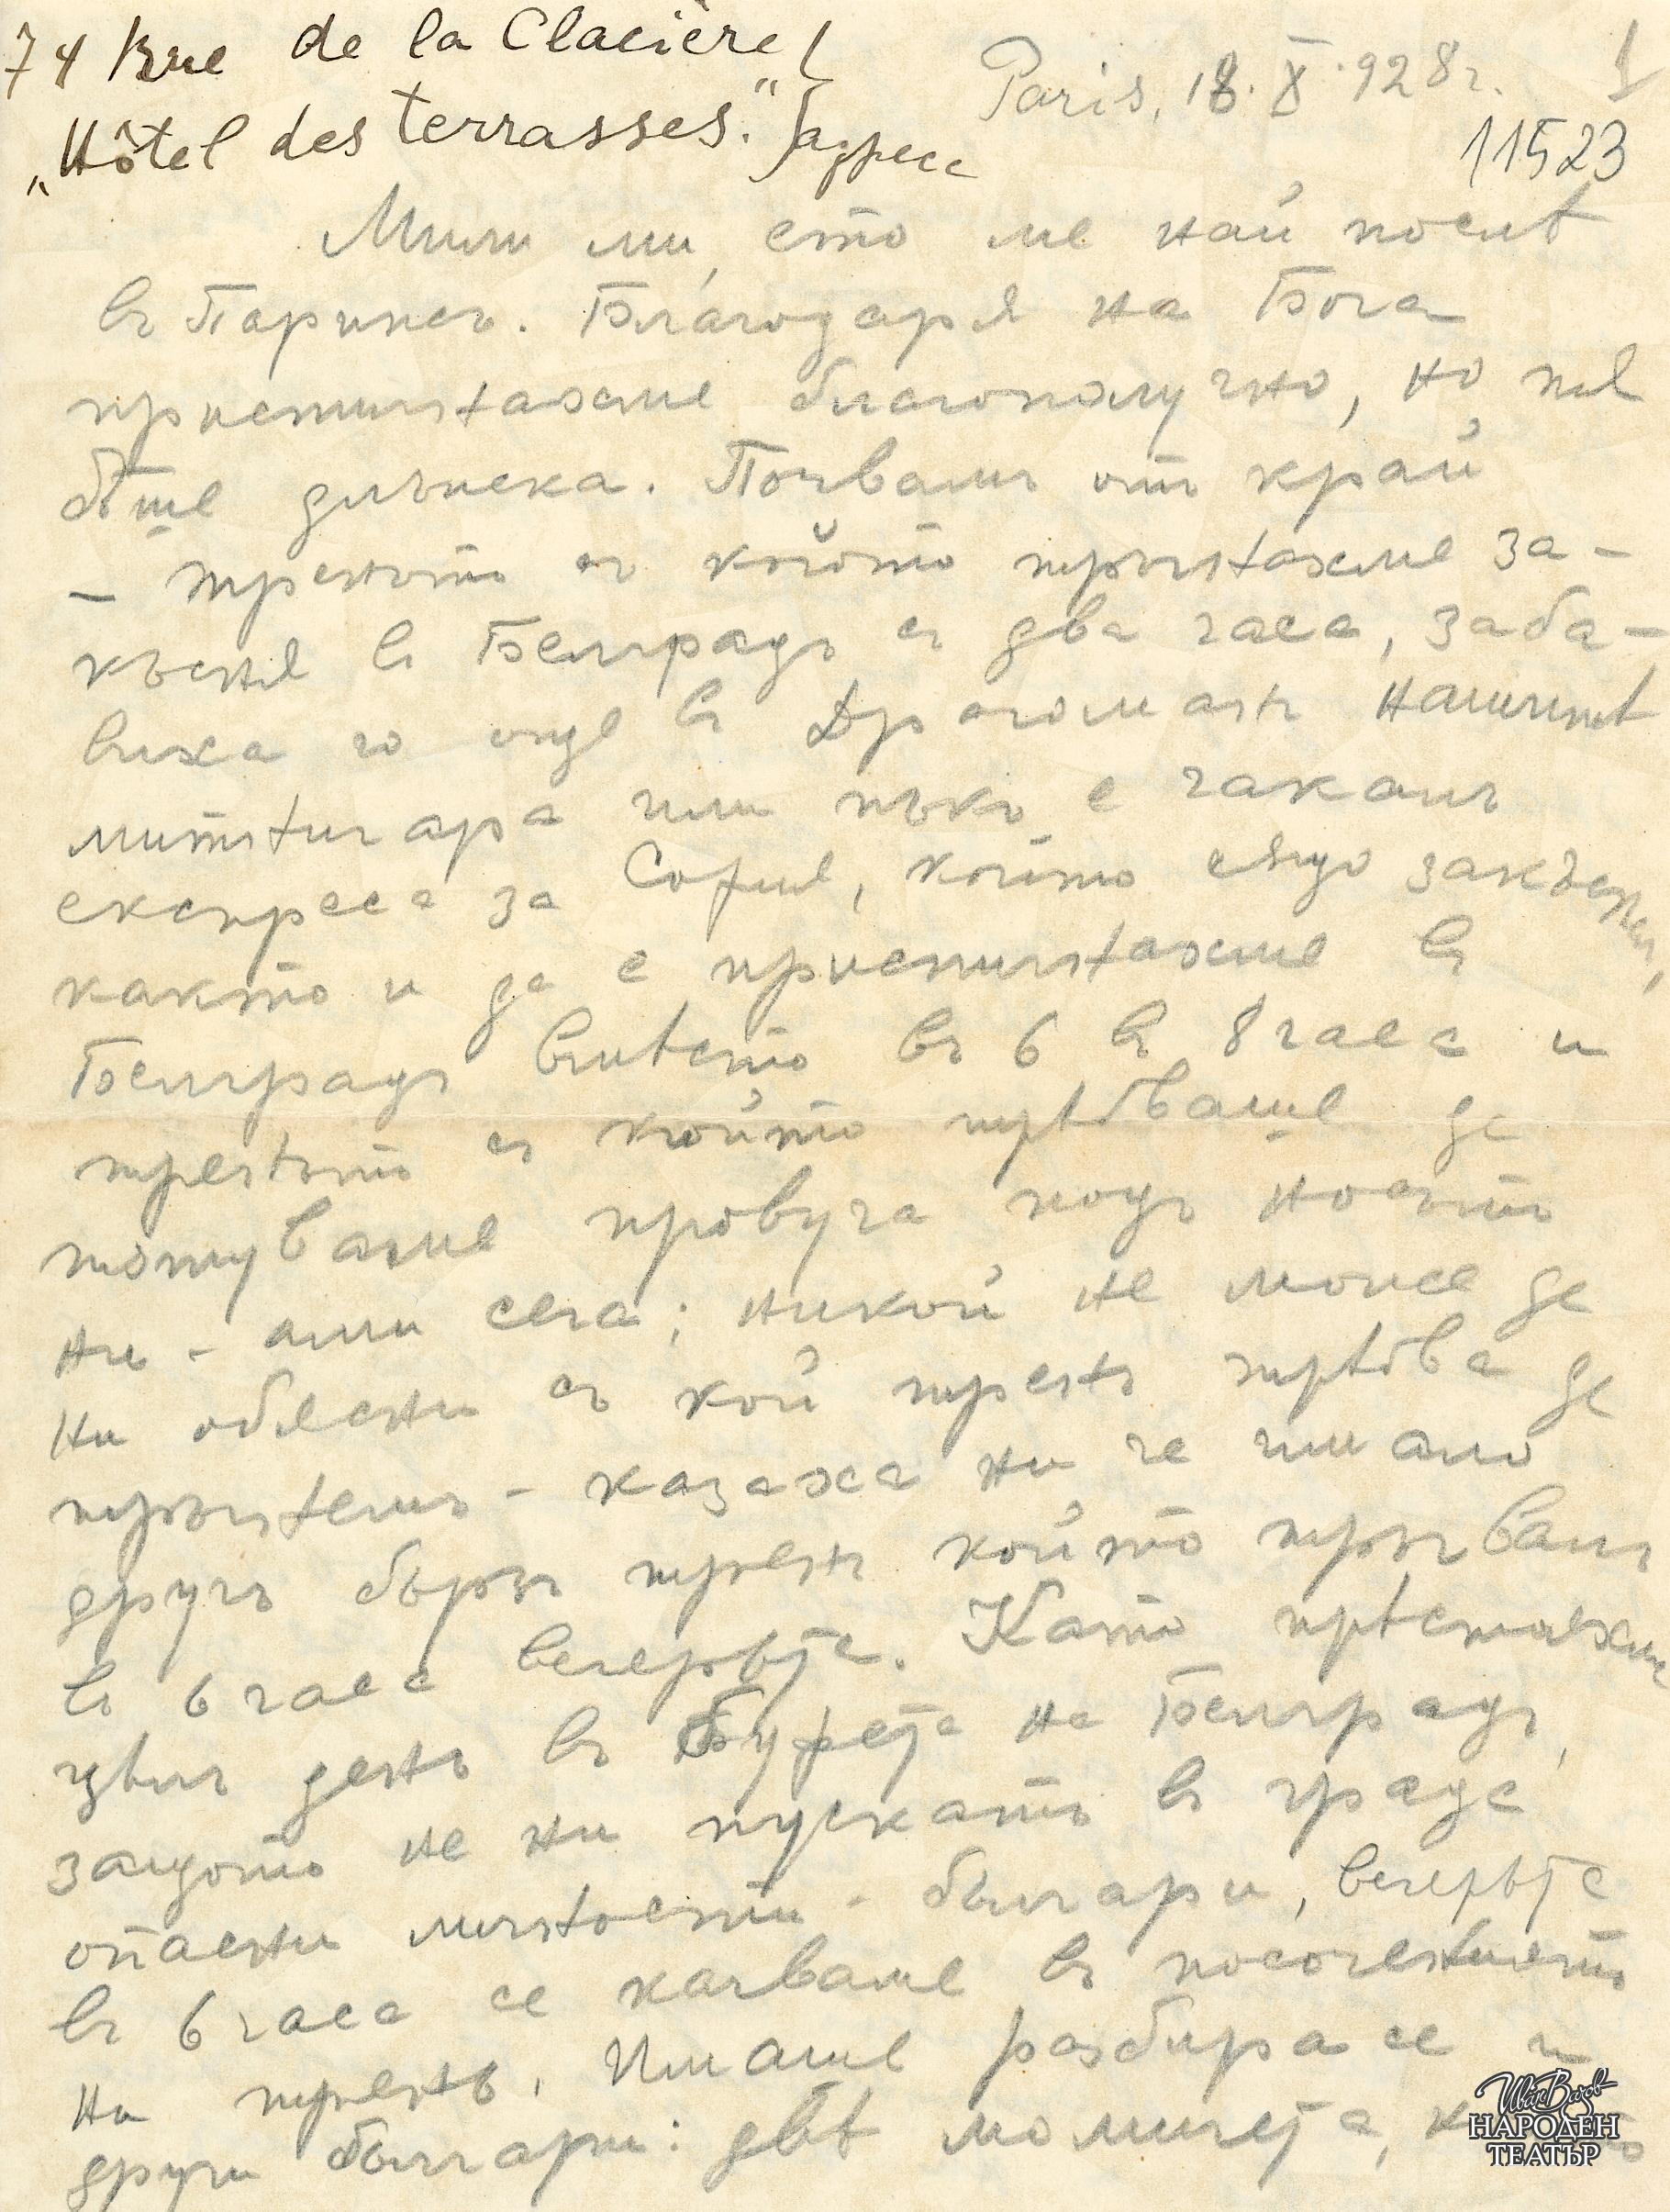 74 Rue de la Glacière
„Hôtel des terrasses." адресс
Paris, 18. X. 928 г.
1
11523
Мили ми, ето ме най послѣ
въ Парижъ. Благодаря на Бога
пристигнахме благополучно, но пѫтя
бѣше дълъгъ. Почвамъ отъ край
– тренътъ съ който тръгнахме за-
къснѣ въ Белградъ съ два часа, заба-
виха го още въ Драгоманъ нашитѣ
митничари или пъкъ е чакалъ
експреса за София, който също закъснѣ,
както и да е пристигнахме въ
Белградъ вмѣсто въ 6 въ 8 часа и
тренътъ съ който трѣбваше да
пътуваме профуча подъ носътъ
ни – ами сега; никой не може да
ни обясни съ кой тренъ трѣбва да
тръгнемъ – казаха ни че имало
другъ бързъ тренъ който тръгвалъ
въ 6 часа вечерьта. Като прѣстояхме
цѣлъ день въ Буфета на Белградъ,
защото не ни пускатъ въ града
опасни личности – българи, вечерьта
въ 6 часа се качваме въ посочениятъ
ни тренъ. Имаше разбира се и
други българи: двѣ момичета,
Иван Вазов
НАРОДЕН
ТЕАТЪР